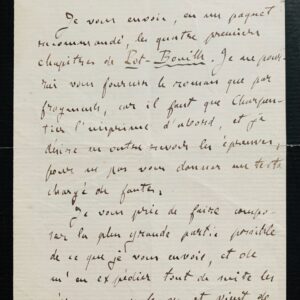 Je vous envoie, en un paquet
recommandé, les quatre premiers
chapitres de Pot-Bouille. Je ne pour-
rai vous fournir le roman que par
fragments, car il faut que Charpen-
tier l'imprime d'abord, et je
désire en outre revoir les épreuves,
pour ne pas vous donner un texte
chargé de fautes.
Je vous prie de faire compo-
ser la plus grande partie possible
de ce que je vous envoie, et de
m'en expédier tout de suite les